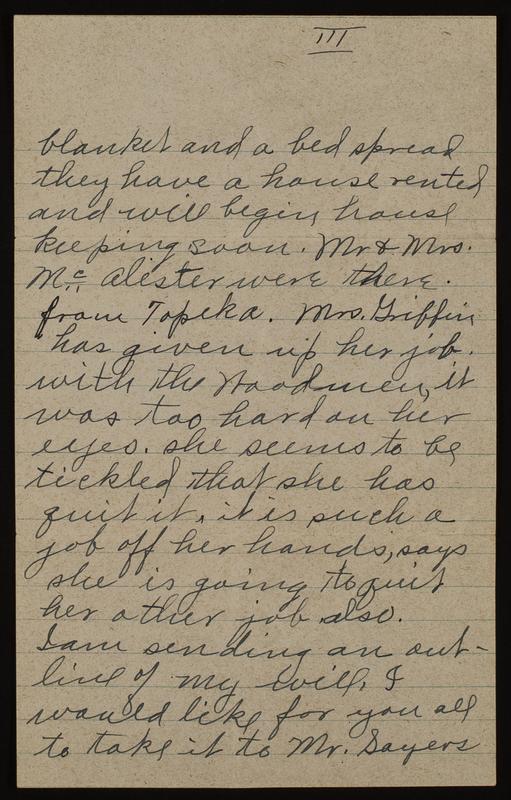 III
blanket and a bed spread
they have a house rented
and will begin house
keeping soon. Mr & Mrs.
Mc Alister were there
from Topeka. Mrs. Griffin
has given up her job.
with the Woodmen, it
was too hard on her
eyes. she seems to be
tickled that she has
quit it, it is such a
job off her hands, says
she is going to quit
her other job also.
I am sending an out-
line of my will, I
would like for you all
to take it to Mr. Sayers